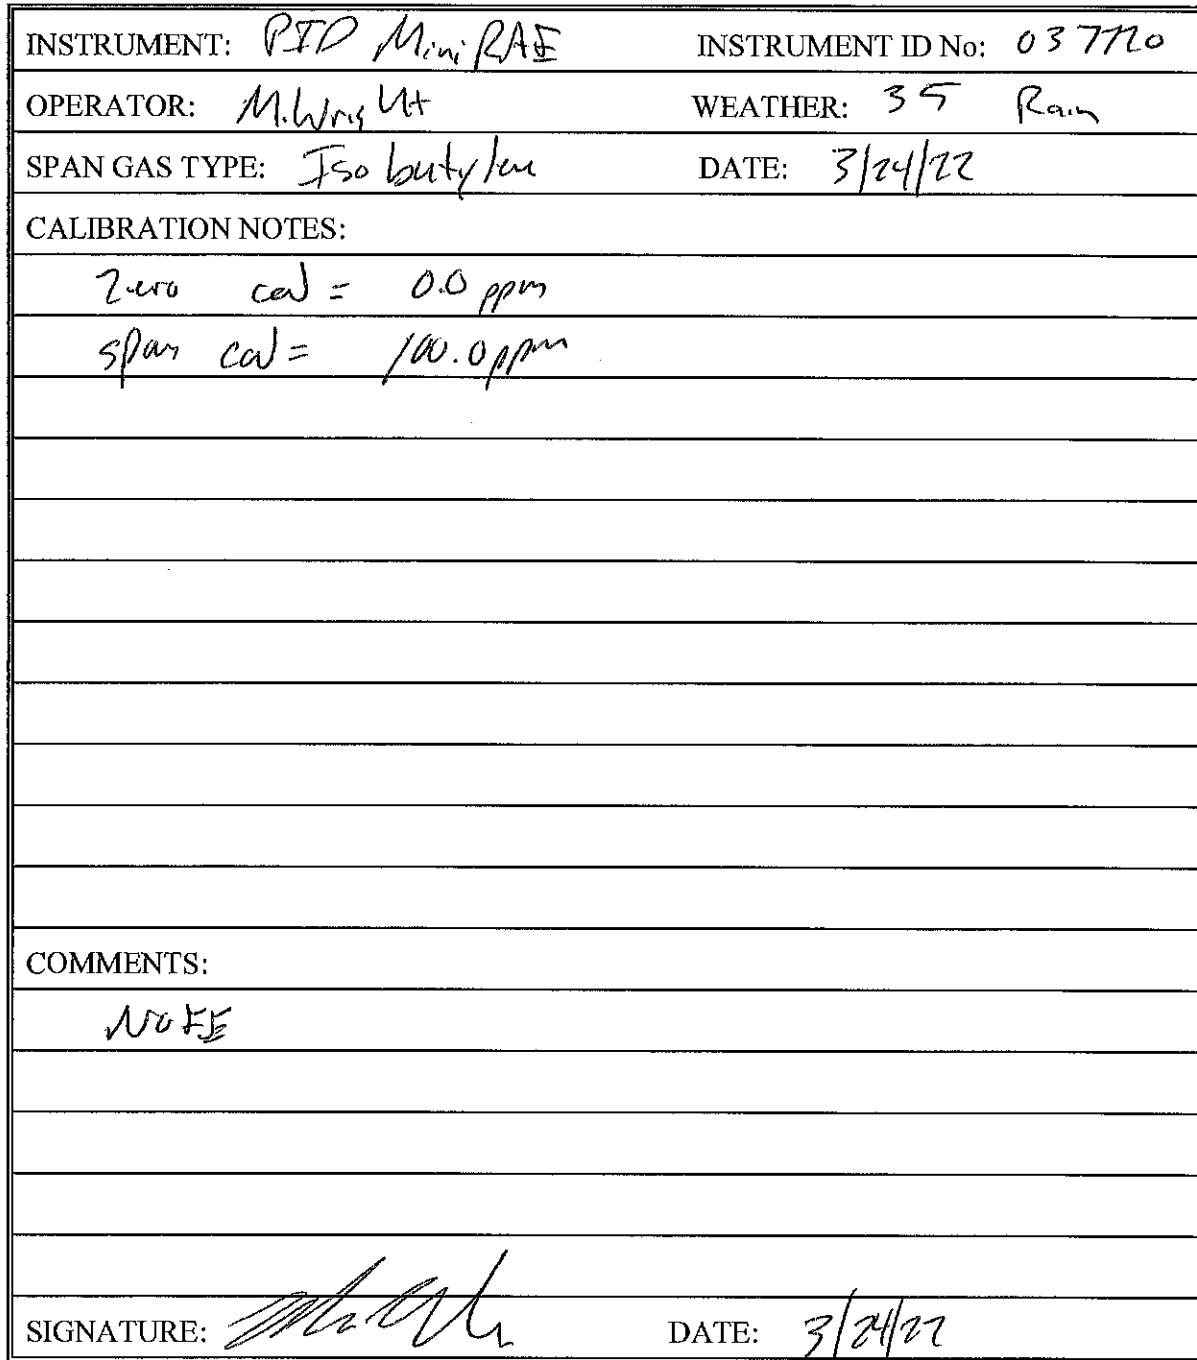 INSTRUMENT: PID MiniRAE INSTRUMENT ID No:
OPERATOR: M. Wright WEATHER: 35 Rain
SPAN GAS TYPE: Isobutylene DATE: 3/24/22
CALIBRATION NOTES:
Zero cal = 0.0 ppm
span cal = 100.0 ppm
COMMENTS:
SIGNATURE: DATE: 3/24/22